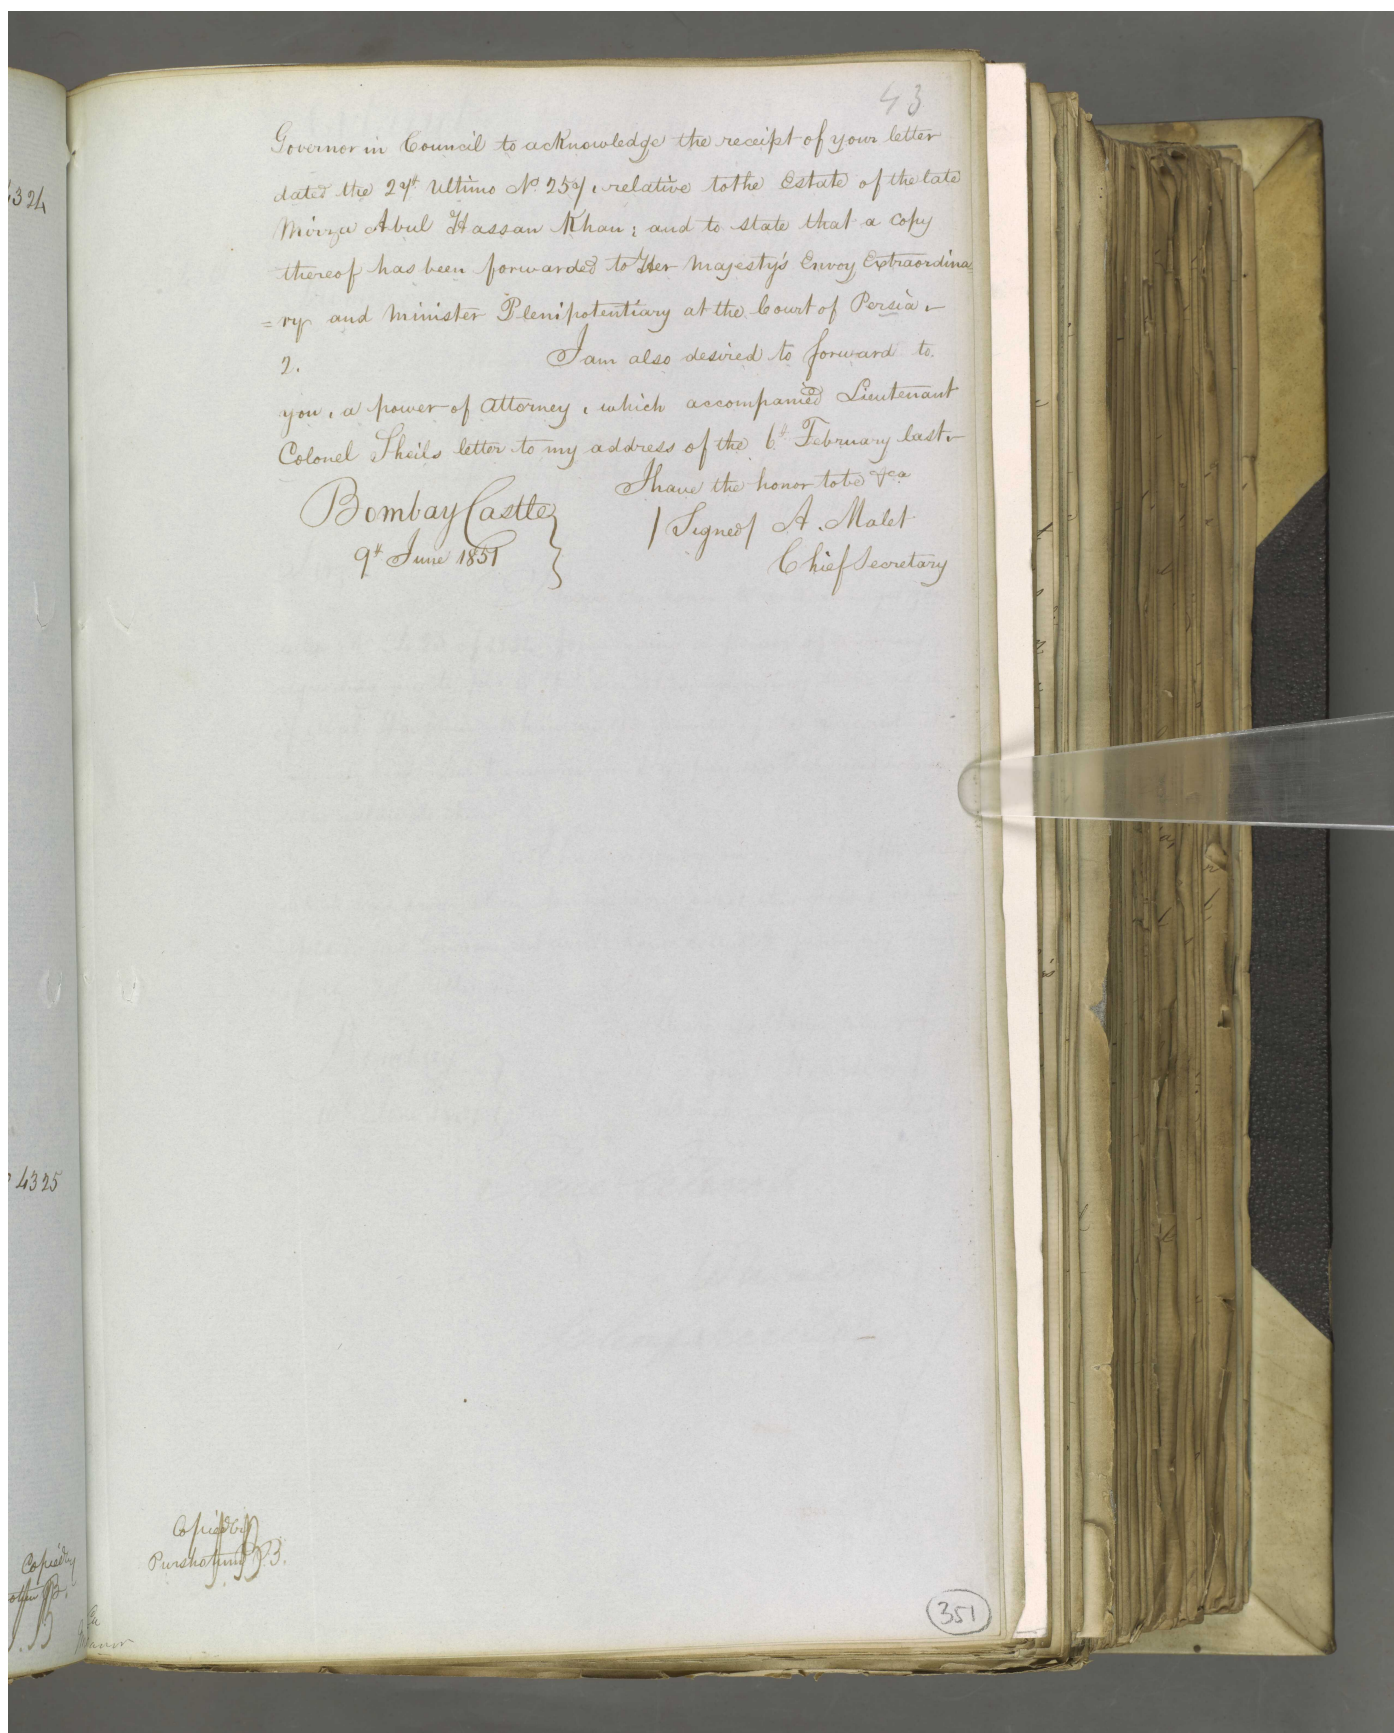 43
Governor in Council to acknowledge the receipt of your letter
dated the 27th Ultimo No. 257, relative to the Estate of the late
Mirza Abul Hassan Khan; and to state that a copy
thereof has been forwarded to Her Majesty's Envoy Extraordina
=ry and Minister Plenipotentiary at the Court of Persia.
2. I am also desired to forward to
you, a power of Attorney, which accompanied Lieutenant
Colonel Sheils letter to my address of the 6th February last.
I have the honor to be &ca
Bombay Castle
/Signed/ A. Malet
9th June 1851
Chief Secretary
324
4325
Copied by
Copied by
Purshotum
351